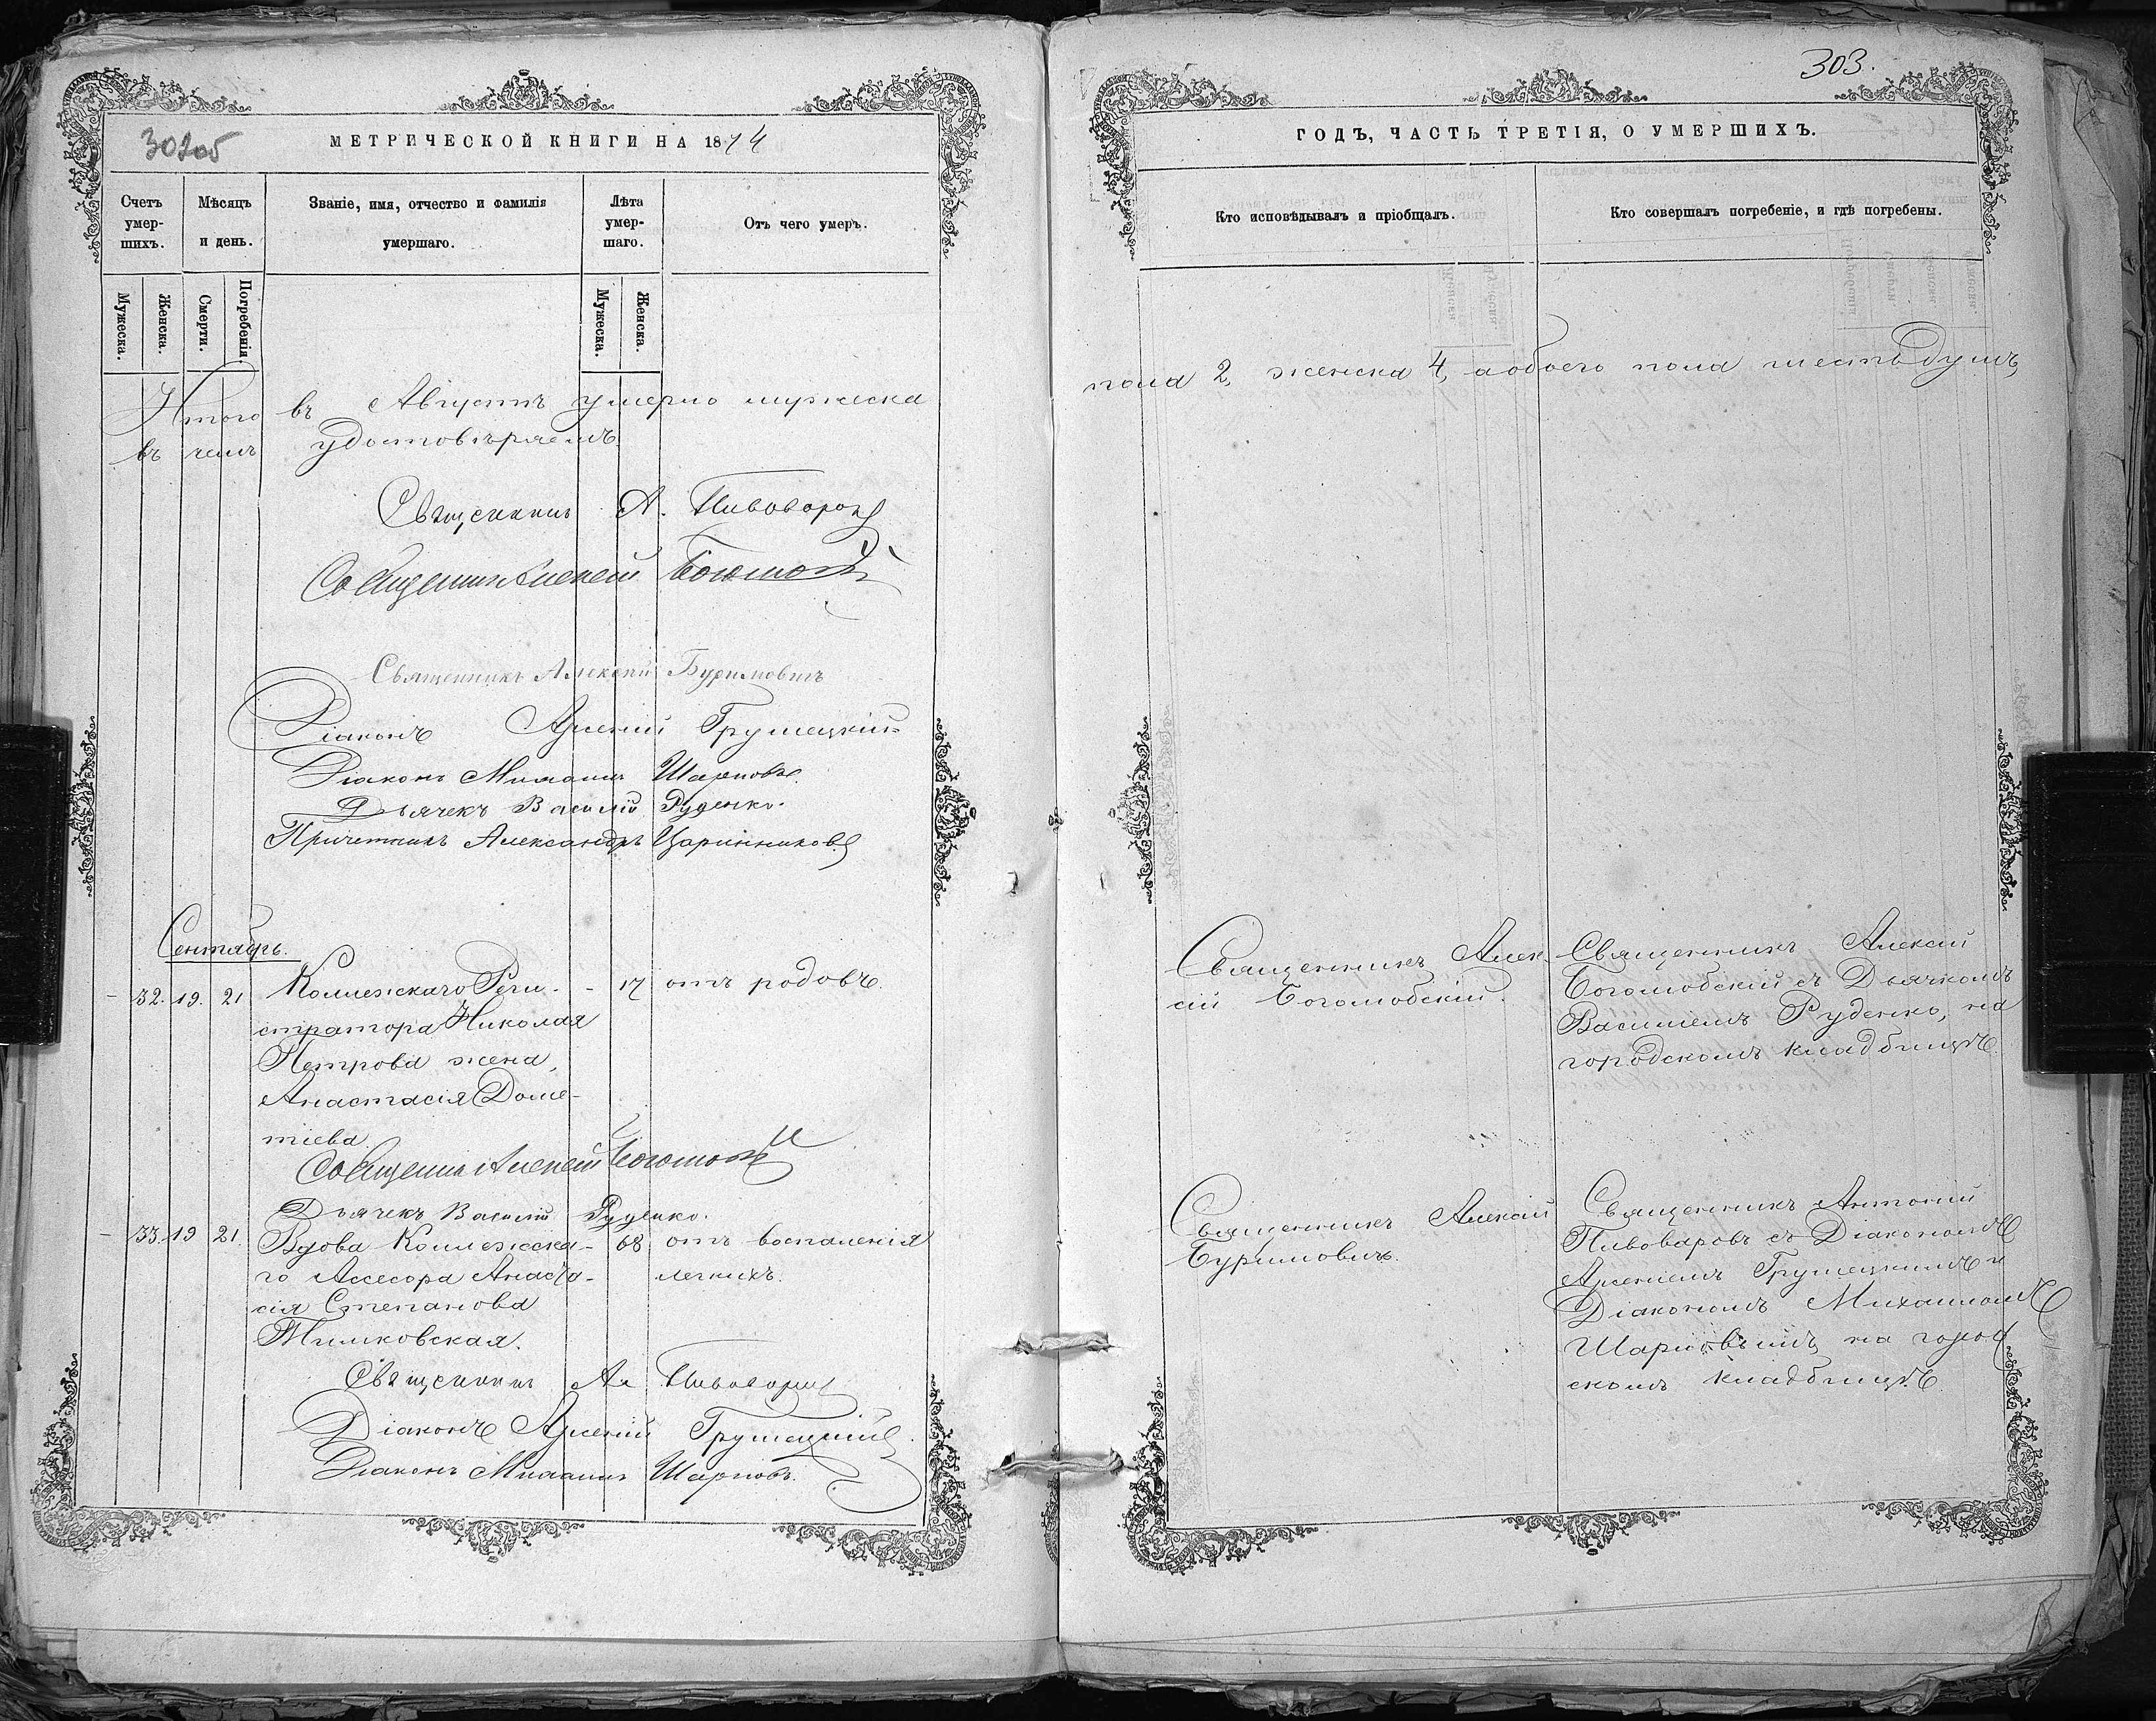 302об
МЕТРИЧЕСКОЙ КНИГИ НА 1874
Счетъ умер-шихъ.
Мѣсяцъ и день.
Званіе, имя, отчество и фамилія умершаго.
Лѣта умер-шаго.
Отъ чего умеръ.
Мужеска.
Женска.
Смерти.
Погребенія.
Мужеска.
Женска.
Итого въ Августѣ умерло мужеска
въ чемъ удостовѣряемъ.
Священникъ А. Пивоваровъ
Священникъ Алексей
Священникъ Алексій Буримовичъ
Діаконъ Арсеній Грушецкій
Діаконъ Михаилъ Шарповъ.
Дьячекъ Василій Руденко.
Причетникъ Александръ Царинниковъ
Сентябрь.
- 32. 19. 21 Коллежскаго Реги- - 17 отъ родовъ.
стратора Николая
Петрова жена,
Анастасія Доме-
тіева.
Священникъ Алексей
Дьячекъ Василій Руденко.
- 33. 19 21. Вдова Коллежска- 68 отъ воспаленія
го Ассесора Анаста- легкихъ.
сія Степанова
Милковская.
Священникъ Ан Пивоваровъ
Діаконъ Арсеній Грушецкій
Діаконъ Михаилъ Шарповъ.
303.
ГОДЪ, ЧАСТЬ ТРЕТІЯ, О УМЕРШИХЪ.
Кто исповѣдывалъ и пріобщалъ.
Кто совершалъ погребеніе, и гдѣ погребены.
пола 2, женска 4, а обоего пола шесть душъ,
Священникъ Алек-
сій Боголюбскій.
Священникъ Алексій
Боголюбскій съ Дьячкомъ
Василіемъ Руденко, на
городскомъ кладбищѣ.
Священникъ Алексій
Буримовичъ.
Священникъ Антоній
Пивоваровъ съ Діакономъ
Арсеніемъ Грушецкимъ и
Діакономъ Михаиломъ
Шарповымъ, на город
скомъ кладбищѣ.